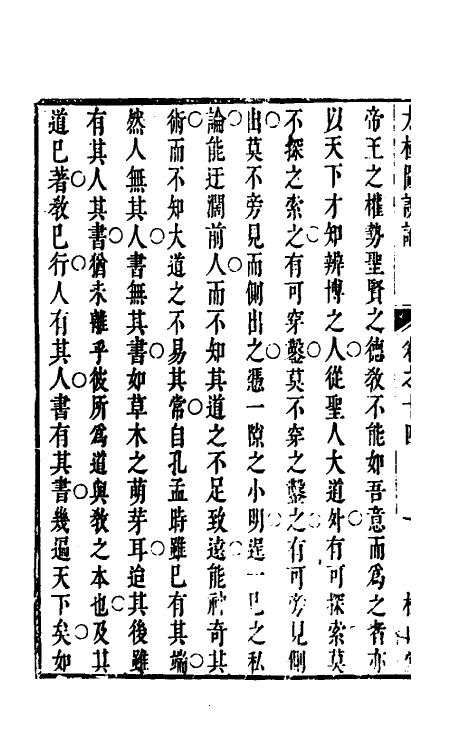 太極圖說論 卷之十四 一
帝王之權勢聖賢之德教不能如吾意而為之者亦
以天下才知辨博之人從聖人大道外有可探索莫
不探之索之有可穿鑿莫不穿之鑿之有可旁見側
出莫不旁見而側出之憑一隙之小明逞一己之私
論能迂濶前人而不知其道之不足致遠能神奇其
術而不知大道之不易其常自孔孟時雖已有其端
然人無其人書無其書如草木之萌芽耳迨其後雖
有其人其書猶未離乎彼所為道與教之本也及其
道已著教已行人有其人書有其書幾遍天下矣如